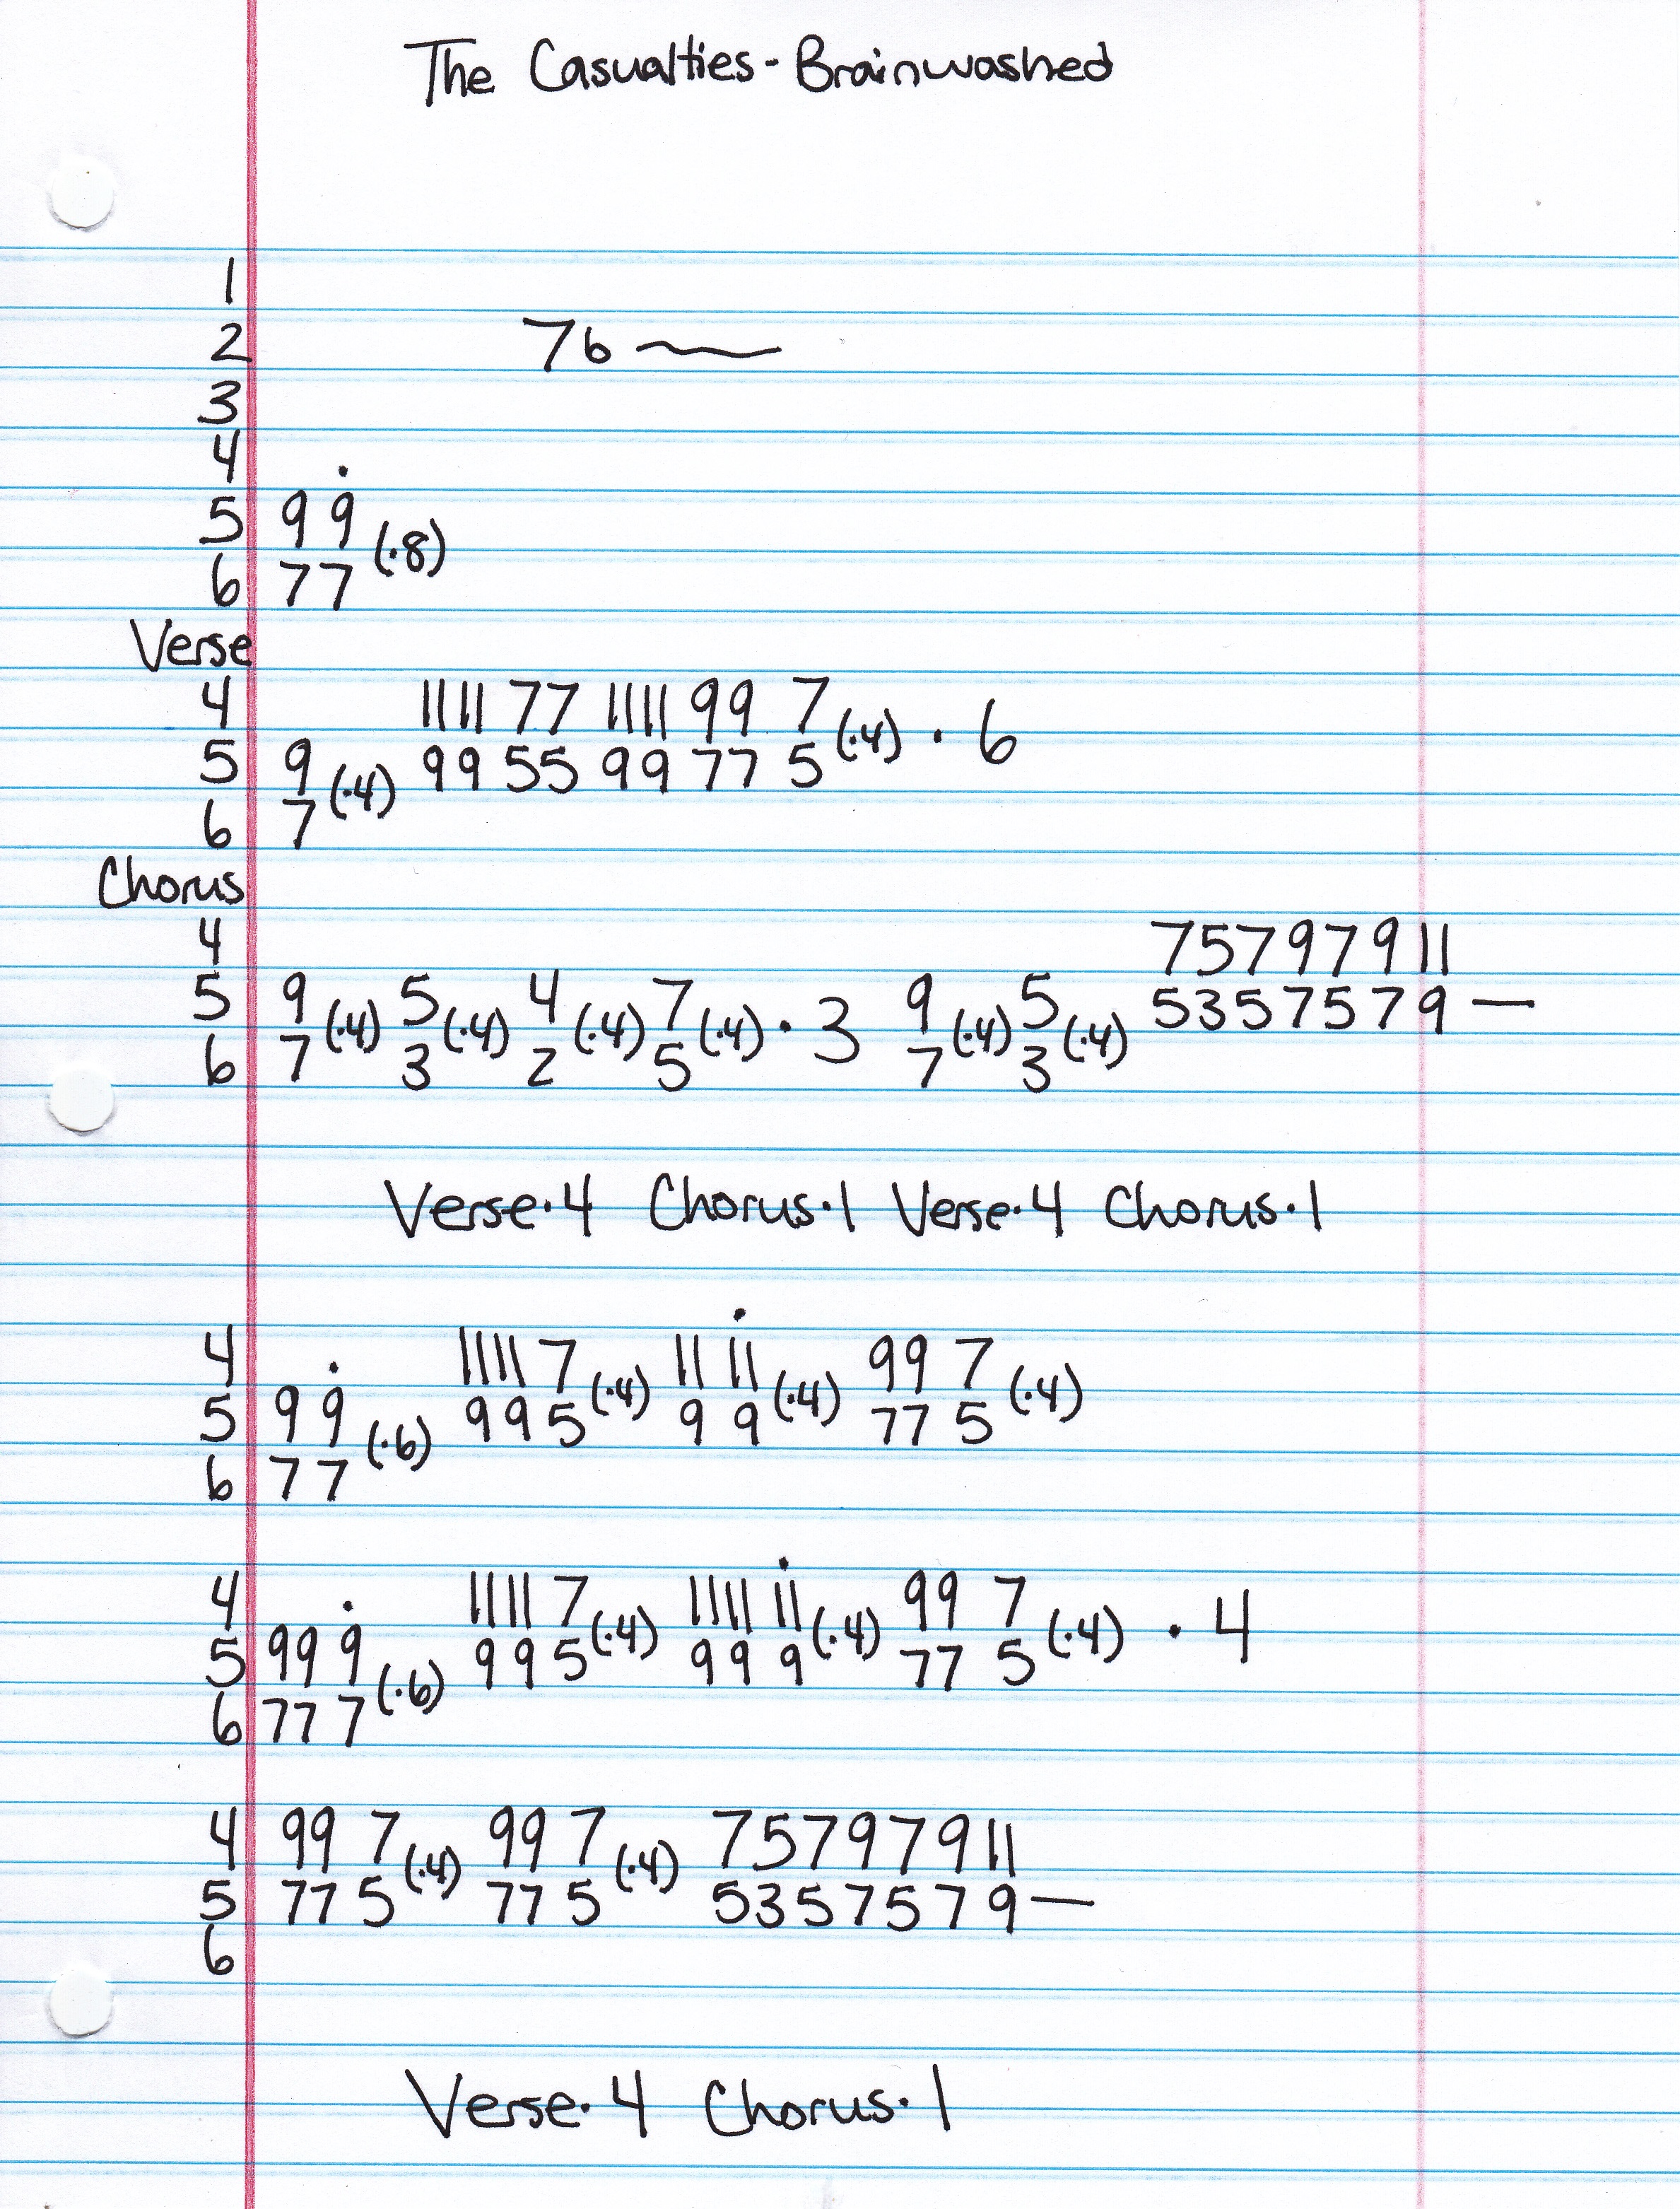 The Casualties - Brainwashed
1
2 7b ~
3
4 .
5 9 9 (·8)
6 7 7
Verse
4 11 11 7 7 11 11 9 9 7 (·4) · 6
5 9 (·4) 9 9 5 5 9 9 7 7 5
6 7
Chorus
4 7 5 7 9 7 9 11
5 9 (·4) 5 (·4) 4 (·4) 7 (·4) · 3 9 (·4) 5 (·4) 5 3 5 7 5 7 9 —
6 7 3 2 5 7 3
Verse·4 Chorus·1 Verse·4 Chorus·1
4 . 11 11 7 (·4) 11 11 (·4) 99 7 (·4)
5 9 9 (·6) 9 9 5 9 9 77 5
6 7 7
4 . 11 11 7 (·4) 11 11 11 (·4) 99 7 (·4) · 4
5 99 9 (·6) 9 9 5 9 9 9 77 5
6 77 7
4 99 7 (·4) 99 7 (·4) 7 5 7 9 7 9 11
5 77 5 77 5 5 3 5 7 5 7 9 —
6
Verse·4 Chorus·1